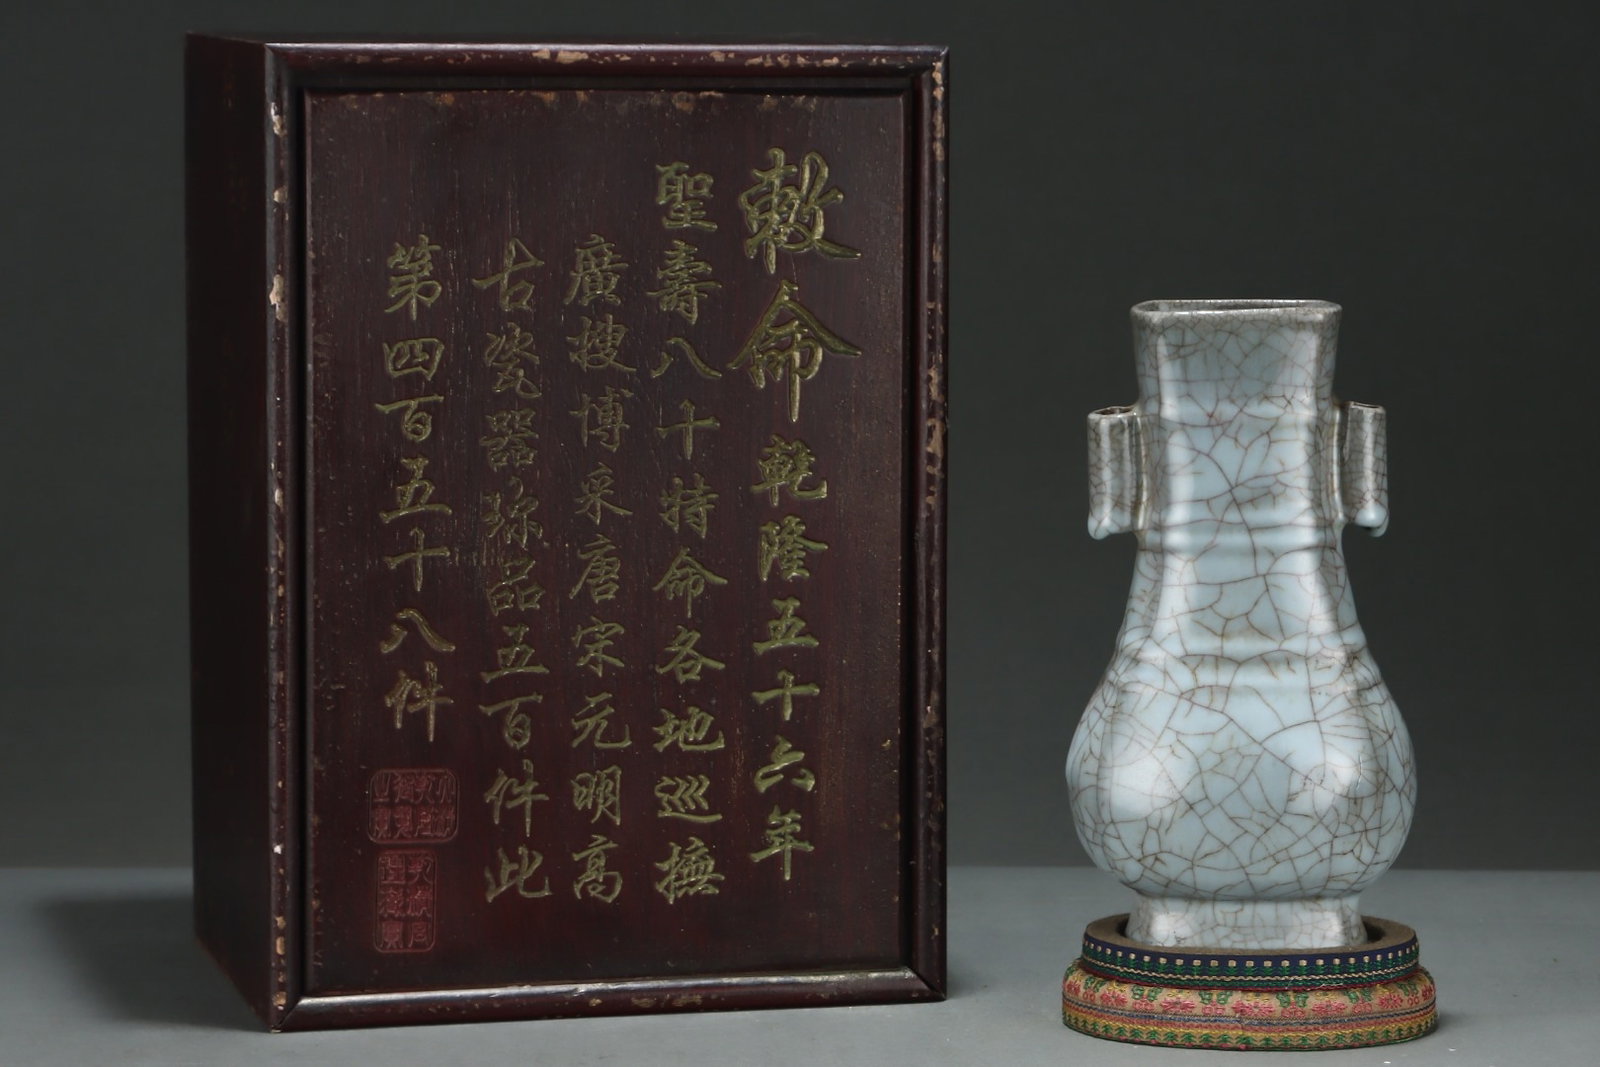 敕命乾隆五十六年
聖壽八十特命各地巡撫
廣搜博采唐宋元明高
古瓷器珎品五百件此
第四百五十八件